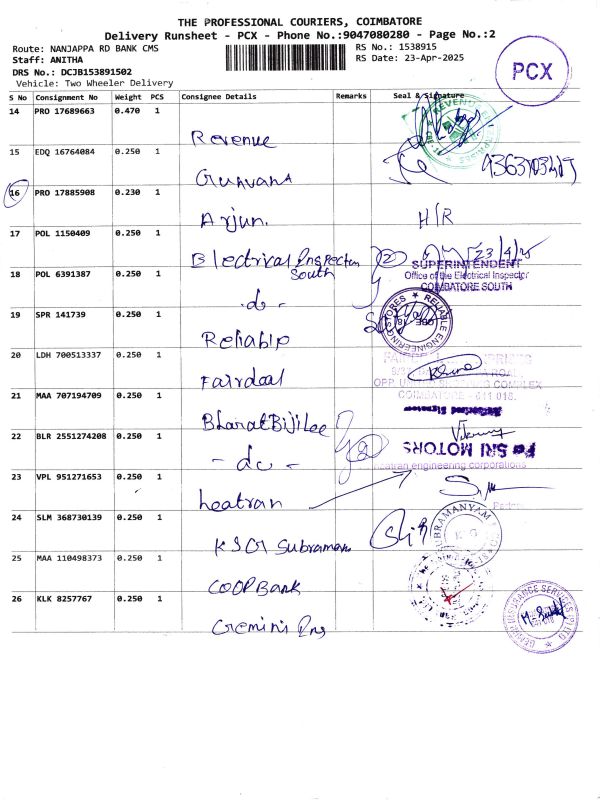 THE PROFESSIONAL COURIERS, COIMBATORE
Delivery Runsheet - PCX - Phone No.:9047080280 - Page No.:2
Route: NANJAPPA RD BANK CMS
RS No.: 1538915
Staff: ANITHA
RS Date: 23-Apr-2025
DRS No.: DCJB153891502
Vehicle: Two Wheeler Delivery
PCX
S No Consignment No Weight PCS Consignee Details Remarks Seal & Signature
14 PRO 17689663 0.470 1 Revenue
15 EDQ 16764084 0.250 1 Gunvana
16 PRO 17885908 0.230 1 Arjun. H/R
17 POL 1150409 0.250 1 Electrical Inspector South
23/4/25
SUPERINTENDENT
Office of the Electrical Inspector
COIMBATORE SOUTH
18 POL 6391387 0.250 1 -do-
19 SPR 141739 0.250 1 Reliable
RELIABLE ENGINEERING STORES
CBE 18
20 LDH 700513337 0.250 1 Fairdeal
COIMBATORE - 641 018.
21 MAA 707194709 0.250 1 Bharat Bijlee
Authorised Signature
22 BLR 2551274208 0.250 1 -do-
For SRI MOTORS
heatran engineering corporations
23 VPL 951271653 0.250 1 heatran
24 SLM 368730139 0.250 1 KSG Subraman
SUBRAMANYAM
25 MAA 110498373 0.250 1 COOP Bank
26 KLK 8257767 0.250 1 Gemini Ins
INSURANCE SERVICES